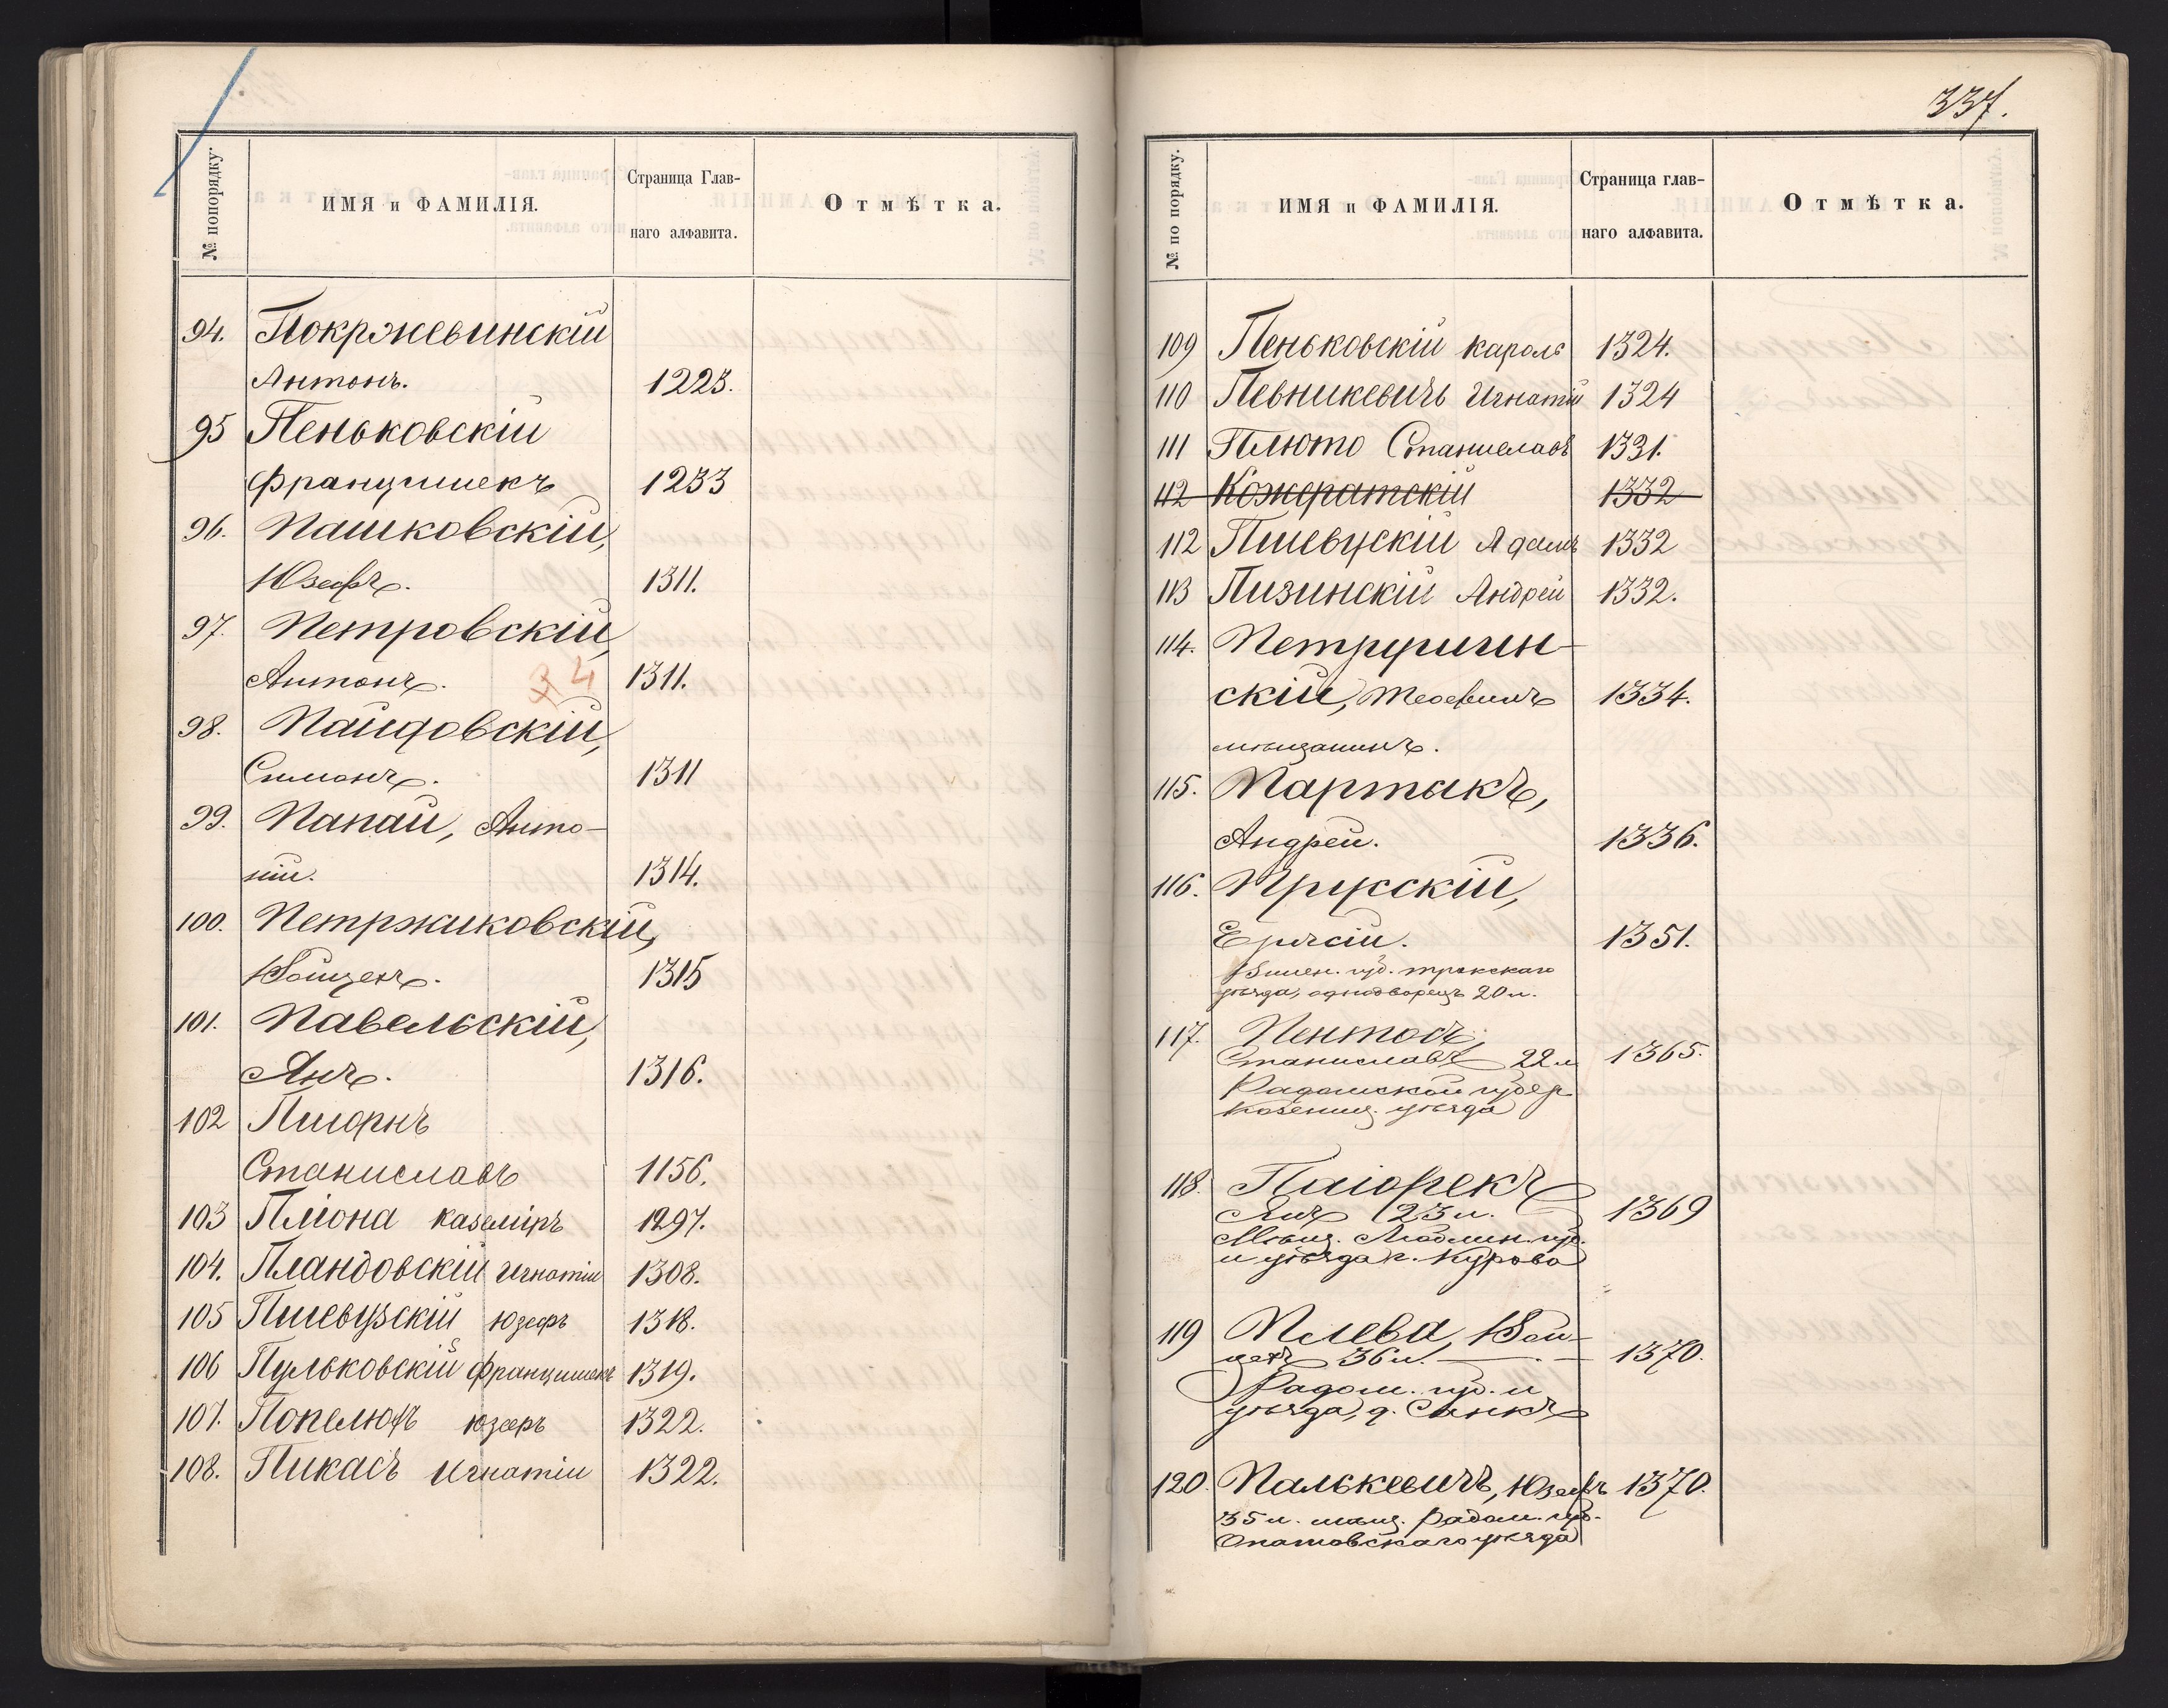 № попорядку.
ИМЯ и ФАМИЛІЯ.
Страница Глав-
наго алфавита.
Отмѣтка.
94. Покржевинскій
Антонъ. 1223.
95 Пеньковскій
Францишекъ 1233
96. Пашковскій,
Юзефъ. 1311.
97. Петровскій,
Антонъ. 34 1311.
98. Пайдовскій,
Симонъ. 1311
99. Папай, Анто-
ній. 1314.
100. Петржиковскій,
Войцехъ. 1315
101. Павельскій,
Янъ. 1316.
102 Піорнъ
Станиславъ 1156.
103 Пліона Каземіръ 1297.
104. Пландовскій Игнатій 1308.
105 Пшевузскій Юзефъ 1318.
106 Пульковскій Францишекъ 1319.
107. Попелюхъ Юзефъ 1322.
108. Пикасъ Игнатій 1322.
337.
№ по порядку.
ИМЯ и ФАМИЛІЯ.
Страница глав-
наго алфавита.
Отмѣтка.
109 Пеньковскій Кароль 1324.
110 Певникевичъ Игнатій 1324
111 Плюто Станиславъ 1331.
112 Кожератскій 1332
112 Пшевускій Адамъ 1332
113 Пизинскій Андрей 1332.
114. Петрушин-
скій, Теофиль 1334.
мѣщанинъ.
115. Партакъ,
Андрей. 1336.
116. Прусскій,
1351.
Вилен. губ. трокскаго
уѣзда, однодворецъ 20 л.
117. Пентосъ,
Станиславъ 22 л 1365.
Радомской губер
Козениц. уѣзда
118. Паіорекъ
Янъ 23 л. 1369
Мѣщ. Люблин. губ.
и уѣзда п. Курова
119 Плева, Вой-
цехъ 36 л. 1370.
Радом. губ. и
уѣзда, д.
120. Палькевичъ, Юзефъ 1370.
35 л. мѣщ. Радом. губ.
Опатовскаго уѣзда